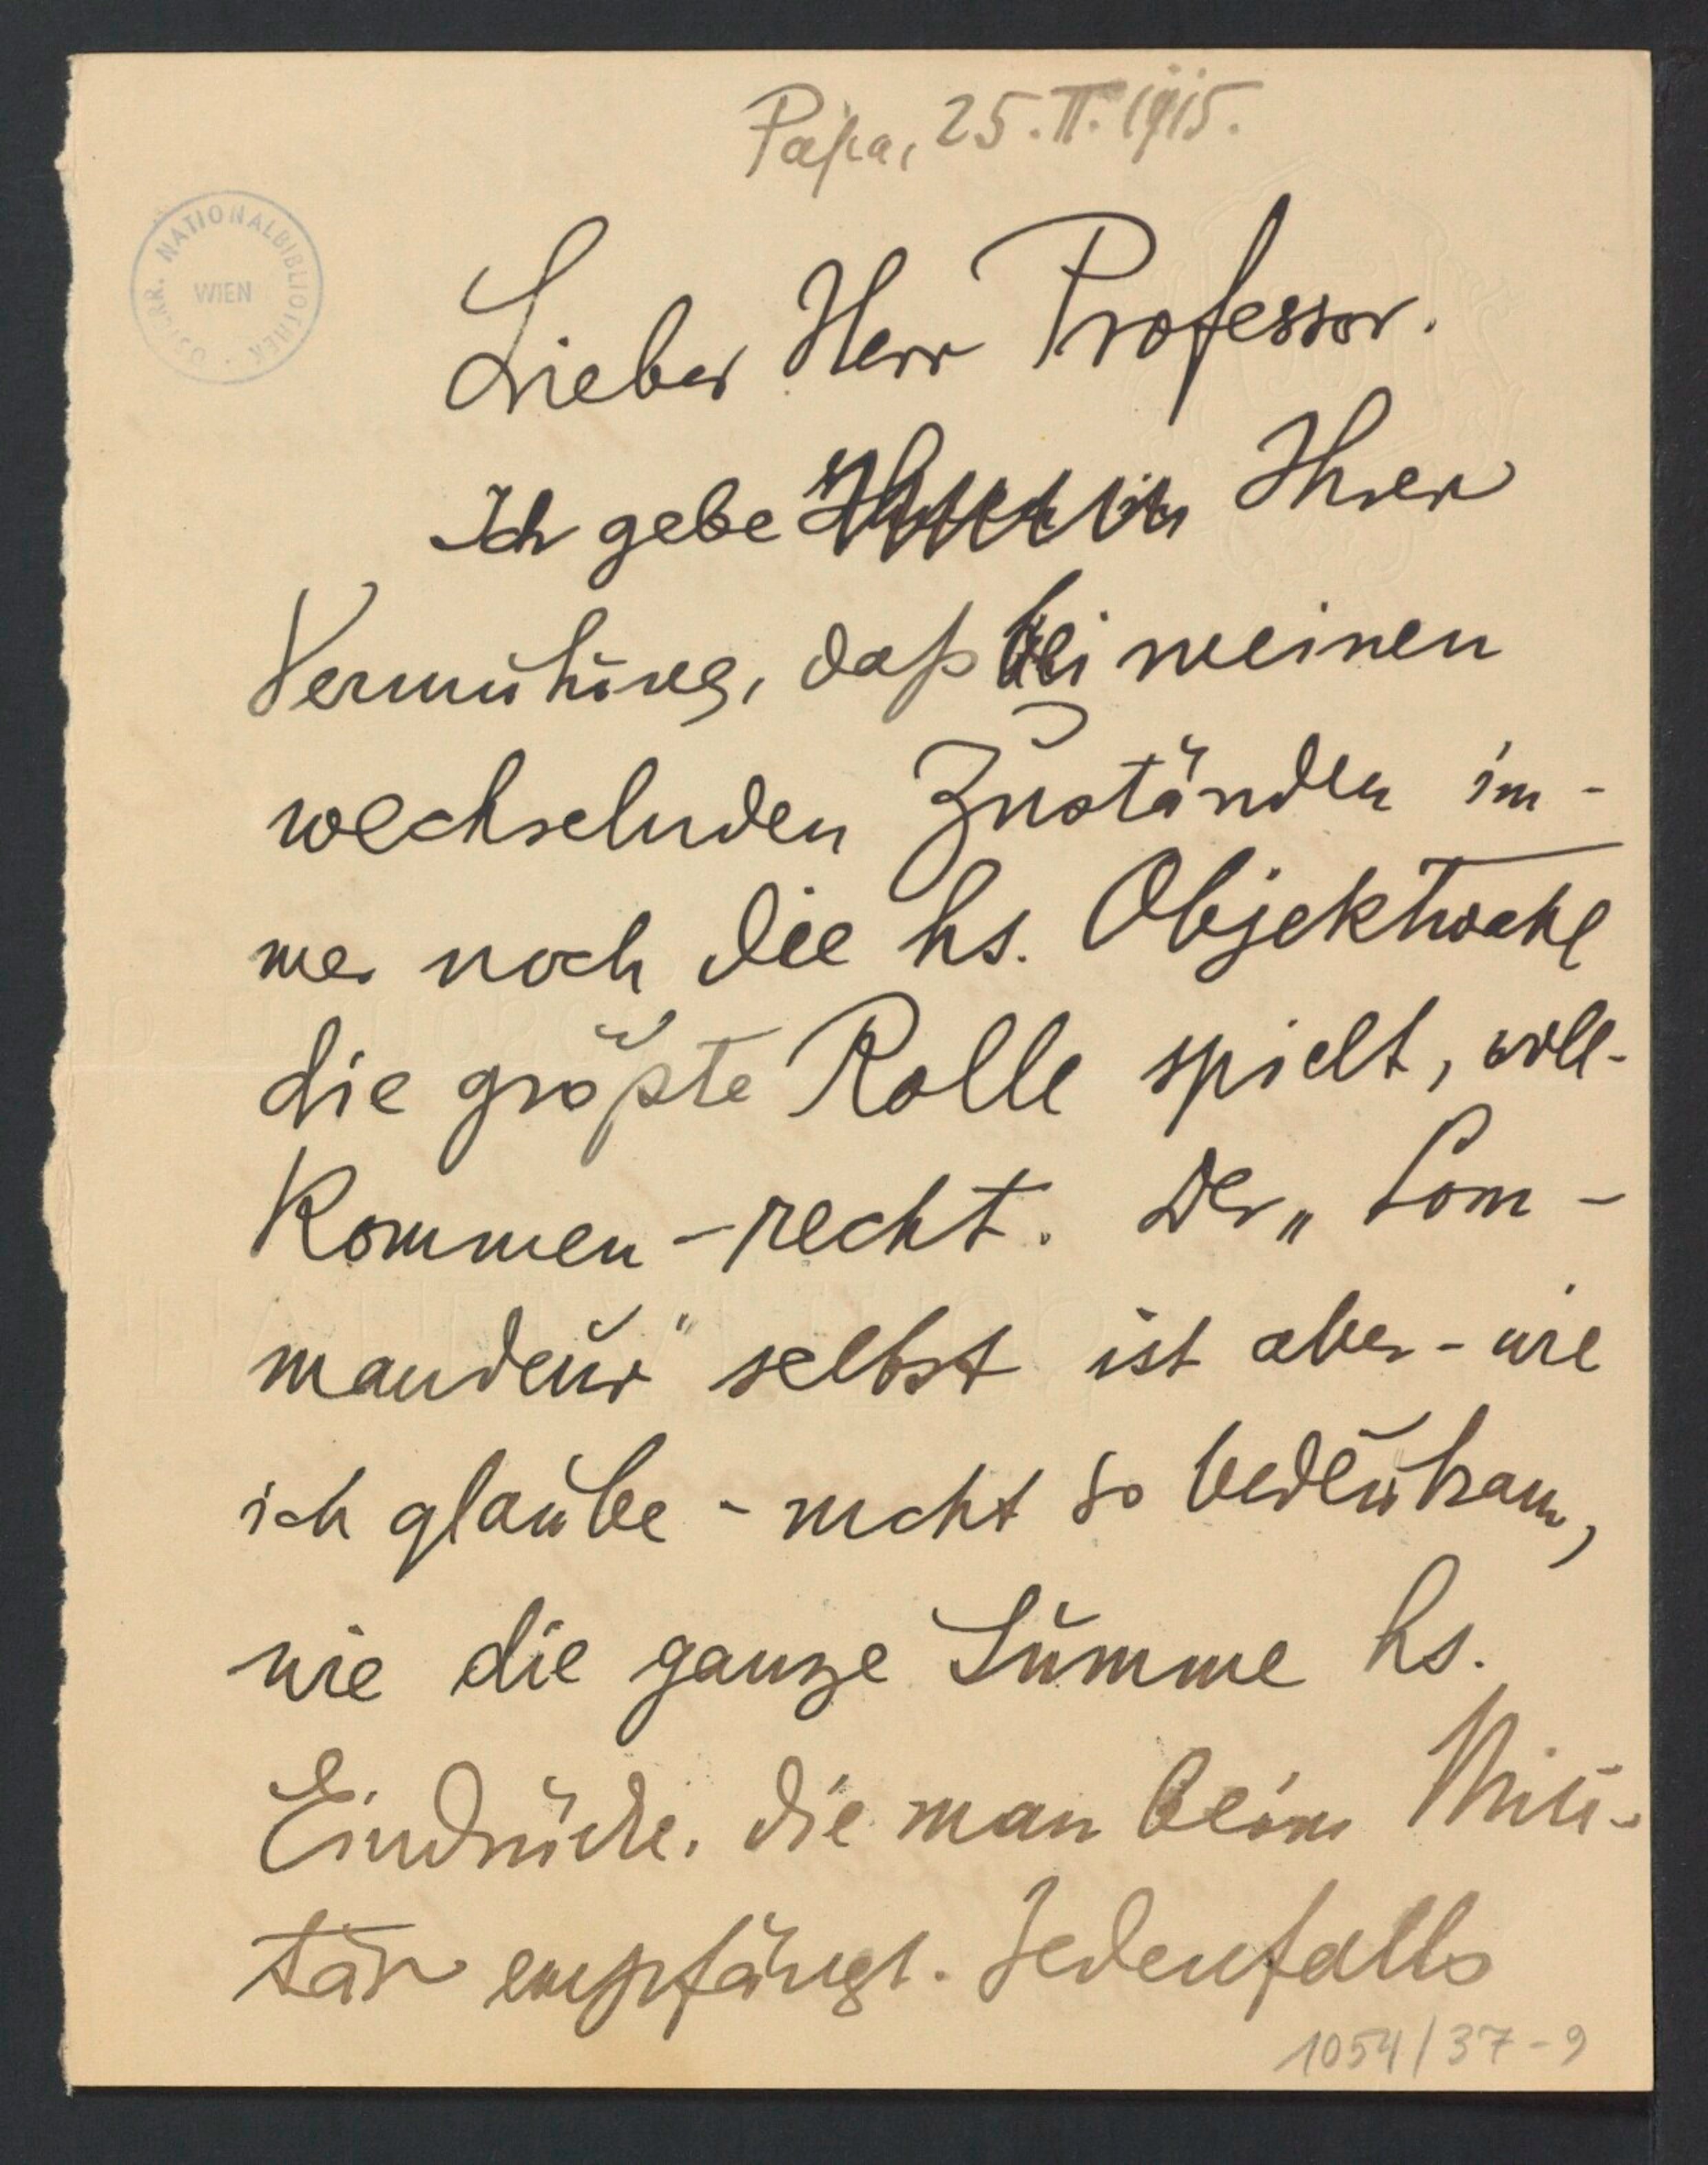 Pápa, 25. II. 1915.
ÖSTERR. NATIONALBIBLIOTHEK
WIEN
Lieber Herr Professor.
Ich gebe Ihrer
Vermuthung, daß bei meinen
wechselnden Zuständen im-
mer noch die hs. Objektwahl
die größte Rolle spielt, voll-
kommen - recht. Der „Com-
mandeur" selbst ist aber - wie
ich glaube - nicht so bedeutsam,
wie die ganze Summe hs.
Eindrücke, die man beim Mili-
tär empfängt. Jedenfalls
1054/37-9